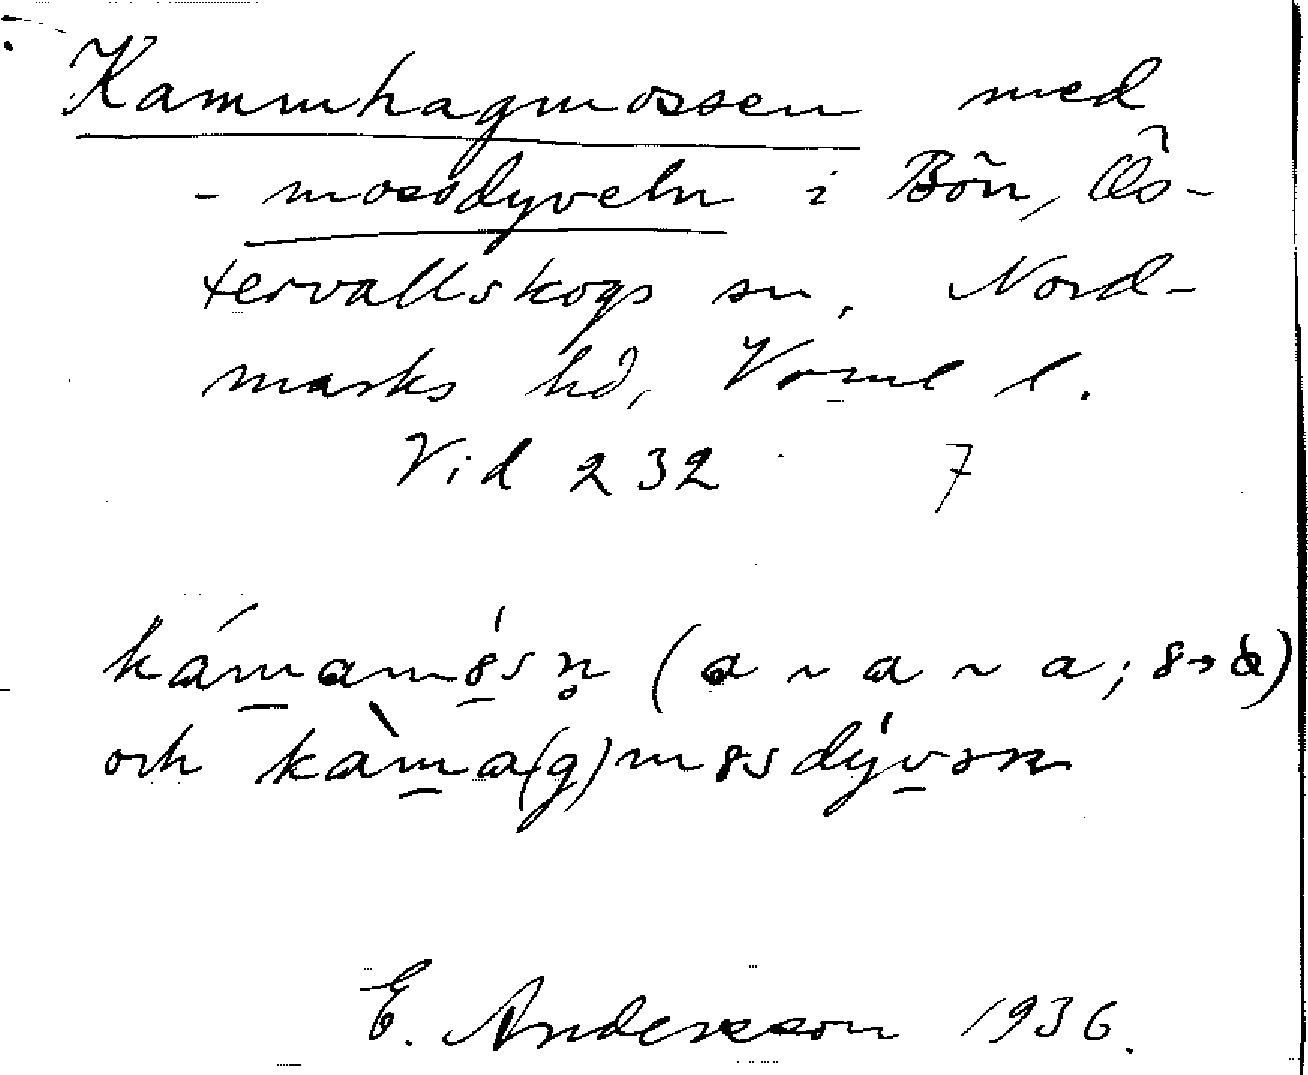 Kammhagmossen med
- mossdyveln i Bön, Ös-
tervallskogs sn, Nord-
marks hd, Vrml l.
Vid 232 7
kámamósn̥ (a ~ a ~ a; 8→å)
och kàma(g)m8sdývən
E. Andersson 1936.